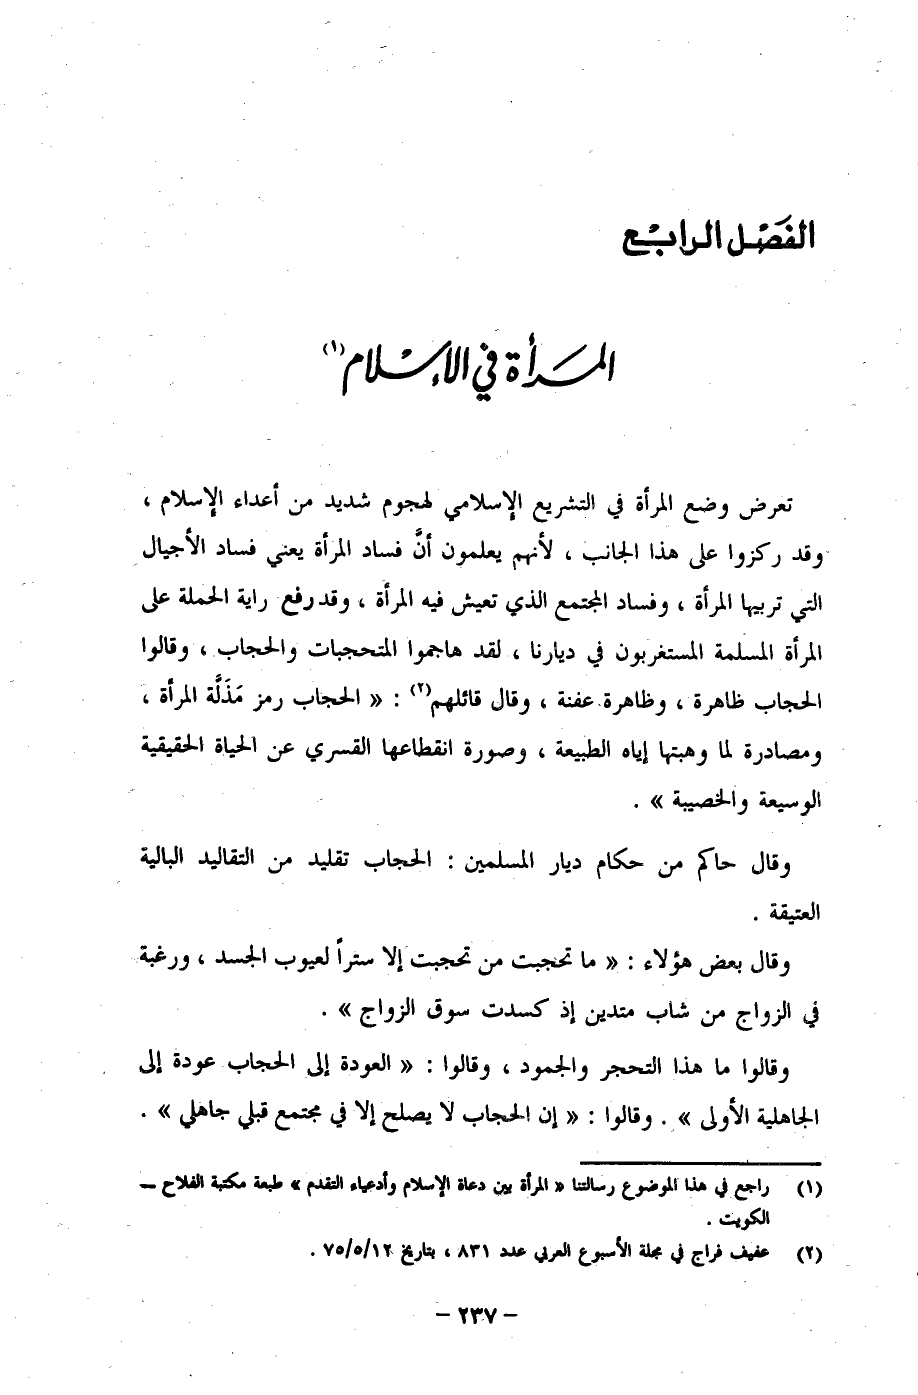 الفَصْل الرابع
المرأة في الإسلام (١)
تعرض وضع المرأة في التشريع الإسلامي لهجوم شديد من أعداء الإسلام ،
وقد ركزوا على هذا الجانب ، لأنهم يعلمون أنَّ فساد المرأة يعني فساد الأجيال
التي تربيها المرأة ، وفساد المجتمع الذي تعيش فيه المرأة ، وقد رفع راية الحملة على
المرأة المسلمة المستغربون في ديارنا ، لقد هاجموا المتحجبات والحجاب ، وقالوا
الحجاب ظاهرة ، وظاهرة عفنة ، وقال قائلهم(٢) : « الحجاب رمز مَذَلَّة المرأة ،
ومصادرة لما وهبتها إياه الطبيعة ، وصورة انقطاعها القسري عن الحياة الحقيقية
الوسيعة والخصيبة » .
وقال حاكم من حكام ديار المسلمين : الحجاب تقليد من التقاليد البالية
العتيقة .
وقال بعض هؤلاء : « ما تحجبت من تحجبت إلا ستراً لعيوب الجسد ، ورغبة
في الزواج من شاب متدين إذ كسدت سوق الزواج » .
وقالوا ما هذا التحجر والجمود ، وقالوا : « العودة إلى الحجاب عودة إلى
الجاهلية الأولى » . وقالوا : « إن الحجاب لا يصلح إلا في مجتمع قبلي جاهلي » .
(١) راجع في هذا الموضوع رسالتنا « المرأة بين دعاة الإسلام وأدعياء التقدم » طبعة مكتبة الفلاح ــ
الكويت .
(٢) عفيف فراج في مجلة الأسبوع العربي عدد ٨٣١ ، بتاريخ ٧٥/٥/١٢ .
– ٢٣٧ –